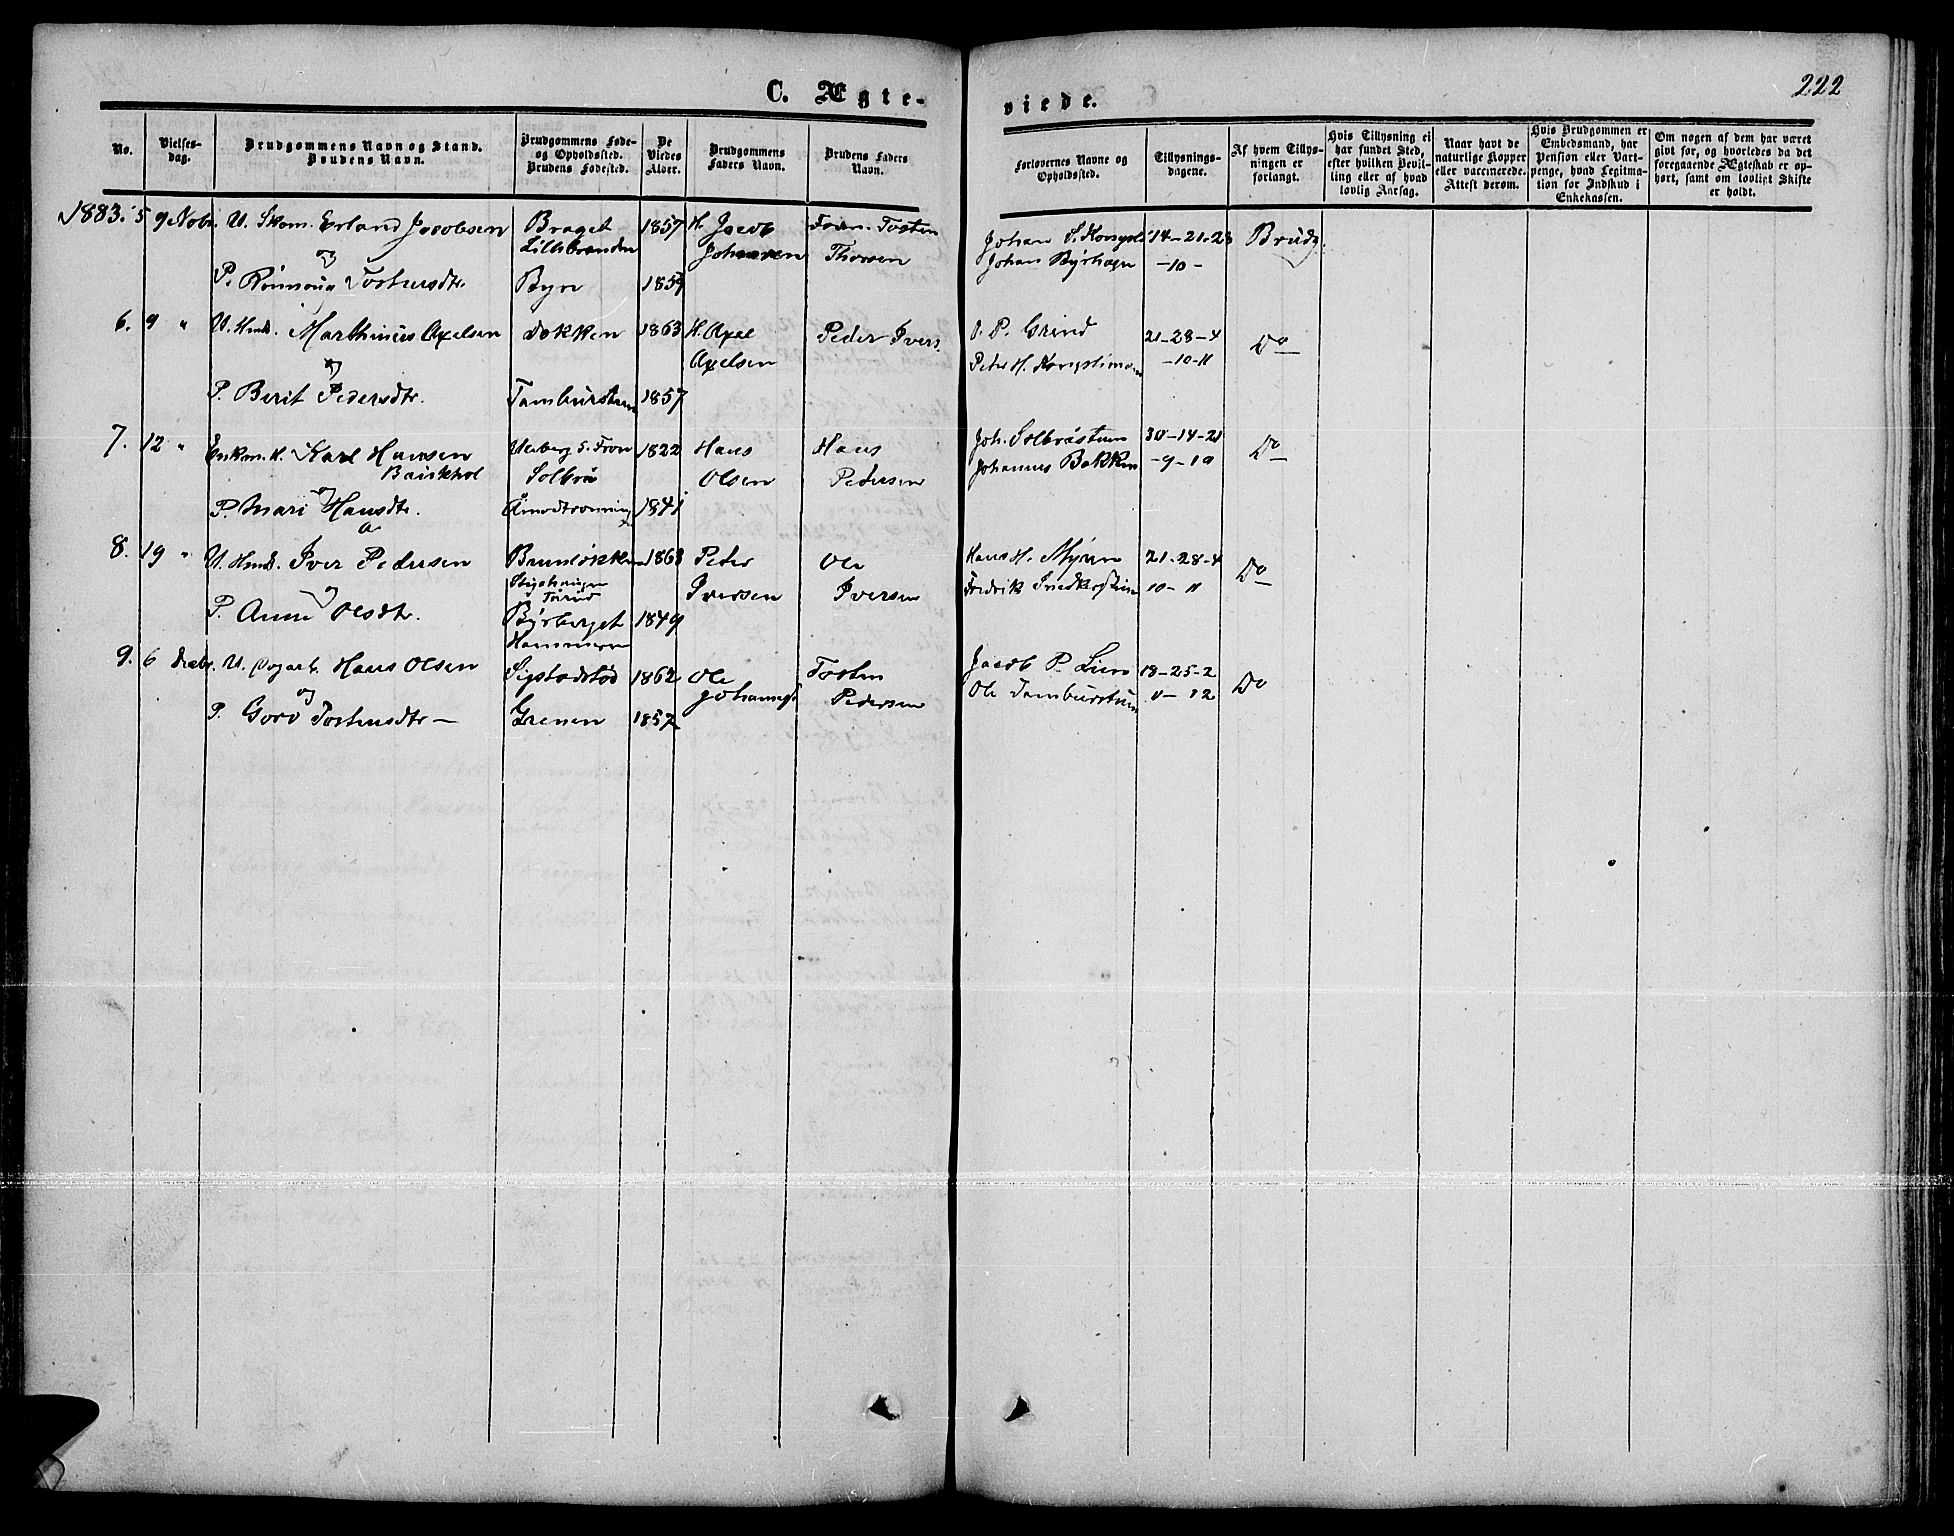 C. Ægte-
viede.
222
No.
Vielses-
dag.
Brudgommens Navn og Stand.
Brudens Navn.
Brudgommens Føde-
og Opholdssted.
Brudens Fødested.
De
Viedes
Alder.
Brudgommens
Faders Navn.
Brudens Faders
Navn.
Forlovernes Navne og
Opholdssted.
Tillysnings-
dagene.
Af hvem Tillys-
ningen er
forlangt.
Hvis Tillysning ei
har fundet Sted,
efter hvilken Bevil-
ling eller af hvad
lovlig Aarsag.
Naar havt de
naturlige Kopper
eller vaccinerede.
Attest derom.
Hvis Brudgommen er
Embedsmand, har
Pension eller Vart-
penge, hvad Legitima-
tion for Indskud i
Enkekassen.
Om nogen af dem har været
givt før, og hvorledes da det
foregaaende Ægteskab er op-
hørt, samt om lovligt Skifte
er holdt.
1883. 5 9 Nobr. U. Skom. Erland Jacobsen Braget 1857 H. Jacob Torsten Johan S. 14-21-28 Brudg.
og Johansen Thorsen Johan -10-
P. Rønnoug Tostensdtr. Byre 1859
6. 9 " U. Hmd. Marthinus Axelsen Dokken 1863 H. Axel Peder Ivers. O. P. Grind 21-28-4 Do
og Axelsen Peter H. -10-11
P. Berit Pedersdtr. 1857
7. 12 " Enkm. H. Karl Hansen S. Fron 1822 Hans Hans Joh. Solbrøstuen 30-14-21 Do
Solbrø Olsen Pedersen Johannes Bakken -9-10
P. Mari Hansdtr. 1841
og
8. 19 " U. Hmd. Iver Pedersen 1863 Peder Ole Hans H. Myren 21-28-4 Do
og Iversen Iversen Fredrik 10-11
P. Anne Olsdtr. Byrberget 1849
Hammeren
9. 6 Decbr. U. Hans Olsen Sigstadstød 1862 Ole Tosten Jacob P. Lien 18-25-2 Do
og Johannes. Pedersen Ole 11-12
P. Goro Tostensdtr. Grenen 1857